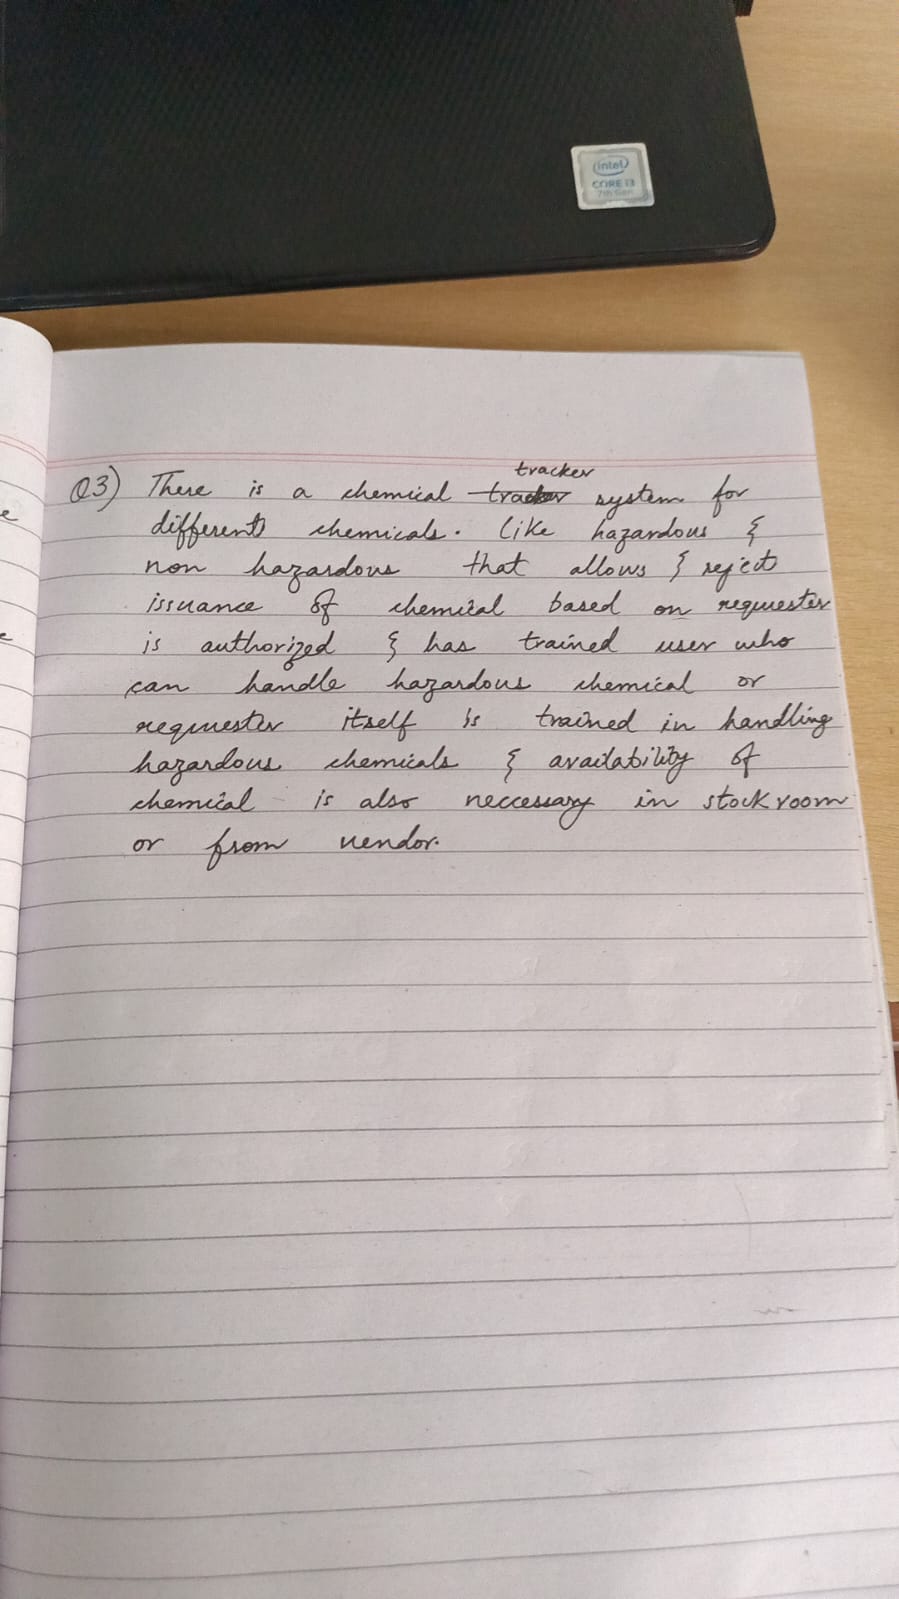 intel
CORE i3
7th Gen
Q3) There is a chemical tracker system for
different chemicals. Like hazardous &
non hazardous that allows & reject
issuance of chemical based on requester
is authorized & has trained user who
can handle hazardous chemical or
requester itself is trained in handling
hazardous chemicals & availability of
chemical is also neccessary in stock room
or from vendor.
e
e